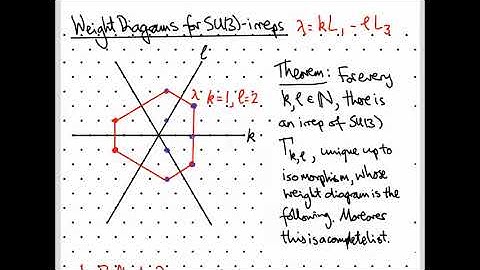 Weight Diagrams for SU(3)-irreps λ = kL₁ - ℓL₃
ℓ
λ. k=1, ℓ=2
k
Theorem: For every
k, ℓ ∈ ℕ, there is
an irrep of SU(3)
Γₖ,ℓ, unique up to
isomorphism, whose
weight diagram is the
following. Moreover
this is a complete list.